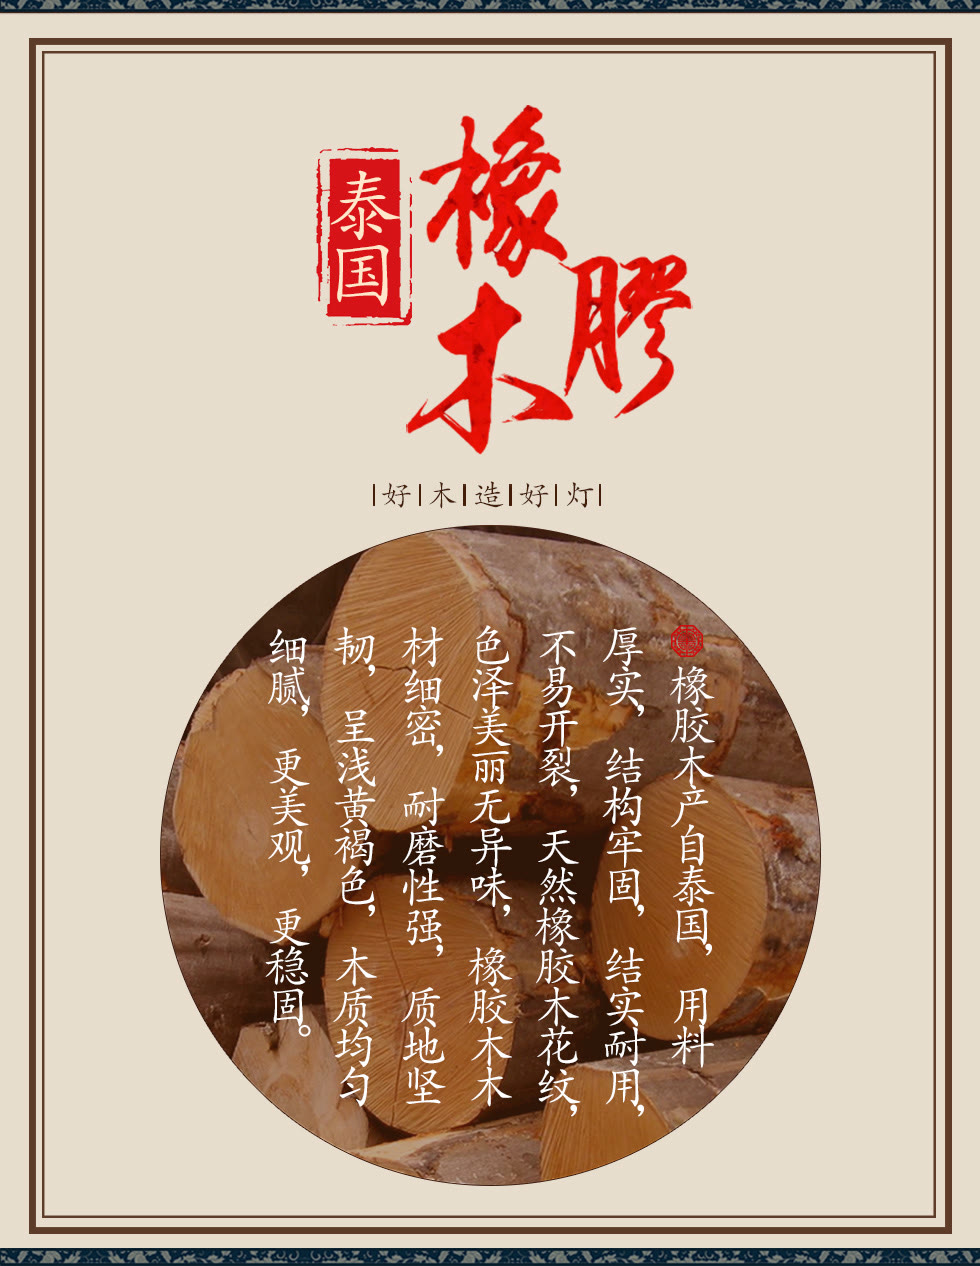 泰国
橡膠木
好木造好灯
橡胶木产自泰国，用料
厚实，结构牢固，结实耐用，
不易开裂，天然橡胶木花纹，
色泽美丽无异味，橡胶木木
材细密，耐磨性强，质地坚
韧，呈浅黄褐色，木质均匀
细腻，更美观，更稳固。